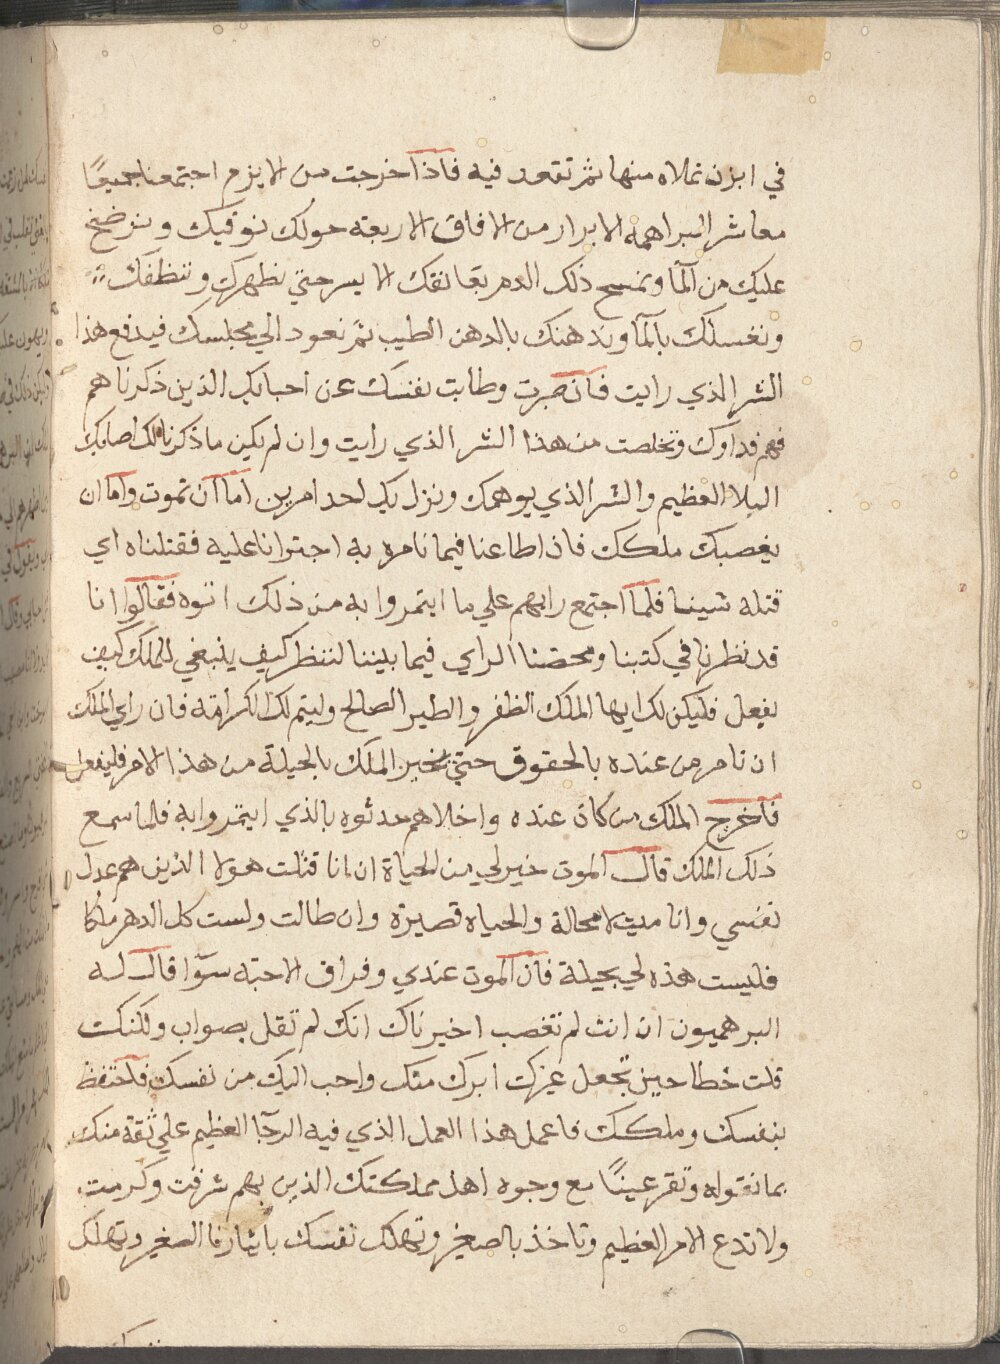 في ابزن نملاه منها ثم تقعد فيه فاذا خرجت من الابزم اجتمعنا جميعًا
معاشر البراهمة الابرار من الافاق الاربعة حولك نوقيك وننرضخ
عليك من المآ ونمسح ذلك الدم بعانقك الايسر حتي نطهرك وننظفك
ونغسلك بالمآ وندهنك بالدهن الطيب ثم نعود الي مجلسك فيدفع هذا
الشر الذي رايت فان صبرت وطابت نفسك عن احبابك الذين ذكرنا هم
فهم فداوك وتخلصت من هذا الشر الذي رايت وان لم يكن ما ذكرنا لك اصابك
البلا العظيم والشر الذي يوهمك ونزل بك احد امرين اما ان تموت واما ان
يغصبك ملكك فاذا اطاعنا فيما نامره به اجترانا عليه فقتلناه اي
قتله شينا فلما اجتمع رايهم علي ما ايتمروا به من ذلك اتوه فقالوا انا
قد نظرنا في كتبنا ومحضنا الراي فيما بيننا لننظر كيف ينبغي للملك كيف
يفعل فليكن لك ايها الملك الظفر والطير الصالح وليتم لك الكرامة فان راي الملك
ان نامر من عنده بالحقوق حتي نخبر الملك بالحيلة من هذا الامر فليفعل
فاخرج الملك من كان عنده واخلاهم حدثوه بالذي ايتمروا به فلما سمع
ذلك الملك قال الموت خير لي من الحياة ان انا قتلت هولا الذين هم عدل
نفسي وانا ميت لا محالة والحياه قصيرة وان طالت ولست كل الدهر ملكا
فليست هذه لي بحيلة فان الموت عندي وفراق الاحبه سوآ قال له
البرهميون ان انت لم تغصب اخبرناك انك لم تقل بصواب ولكنك
قلت خطا حين تجعل غيرك ابرك منك واحب اليك من نفسك فاحتفظ
بنفسك وملكك فاعمل هذا العمل الذي فيه الرجآ العظيم علي ثقة منك
بما نقوله وتقر عينًا مع وجوه اهل مملكتك الذين بهم شرفت وكرمت
ولا تدع الامر العظيم وتاخذ بالصغير وتهلك نفسك بايثار فا الصغير وتهلك